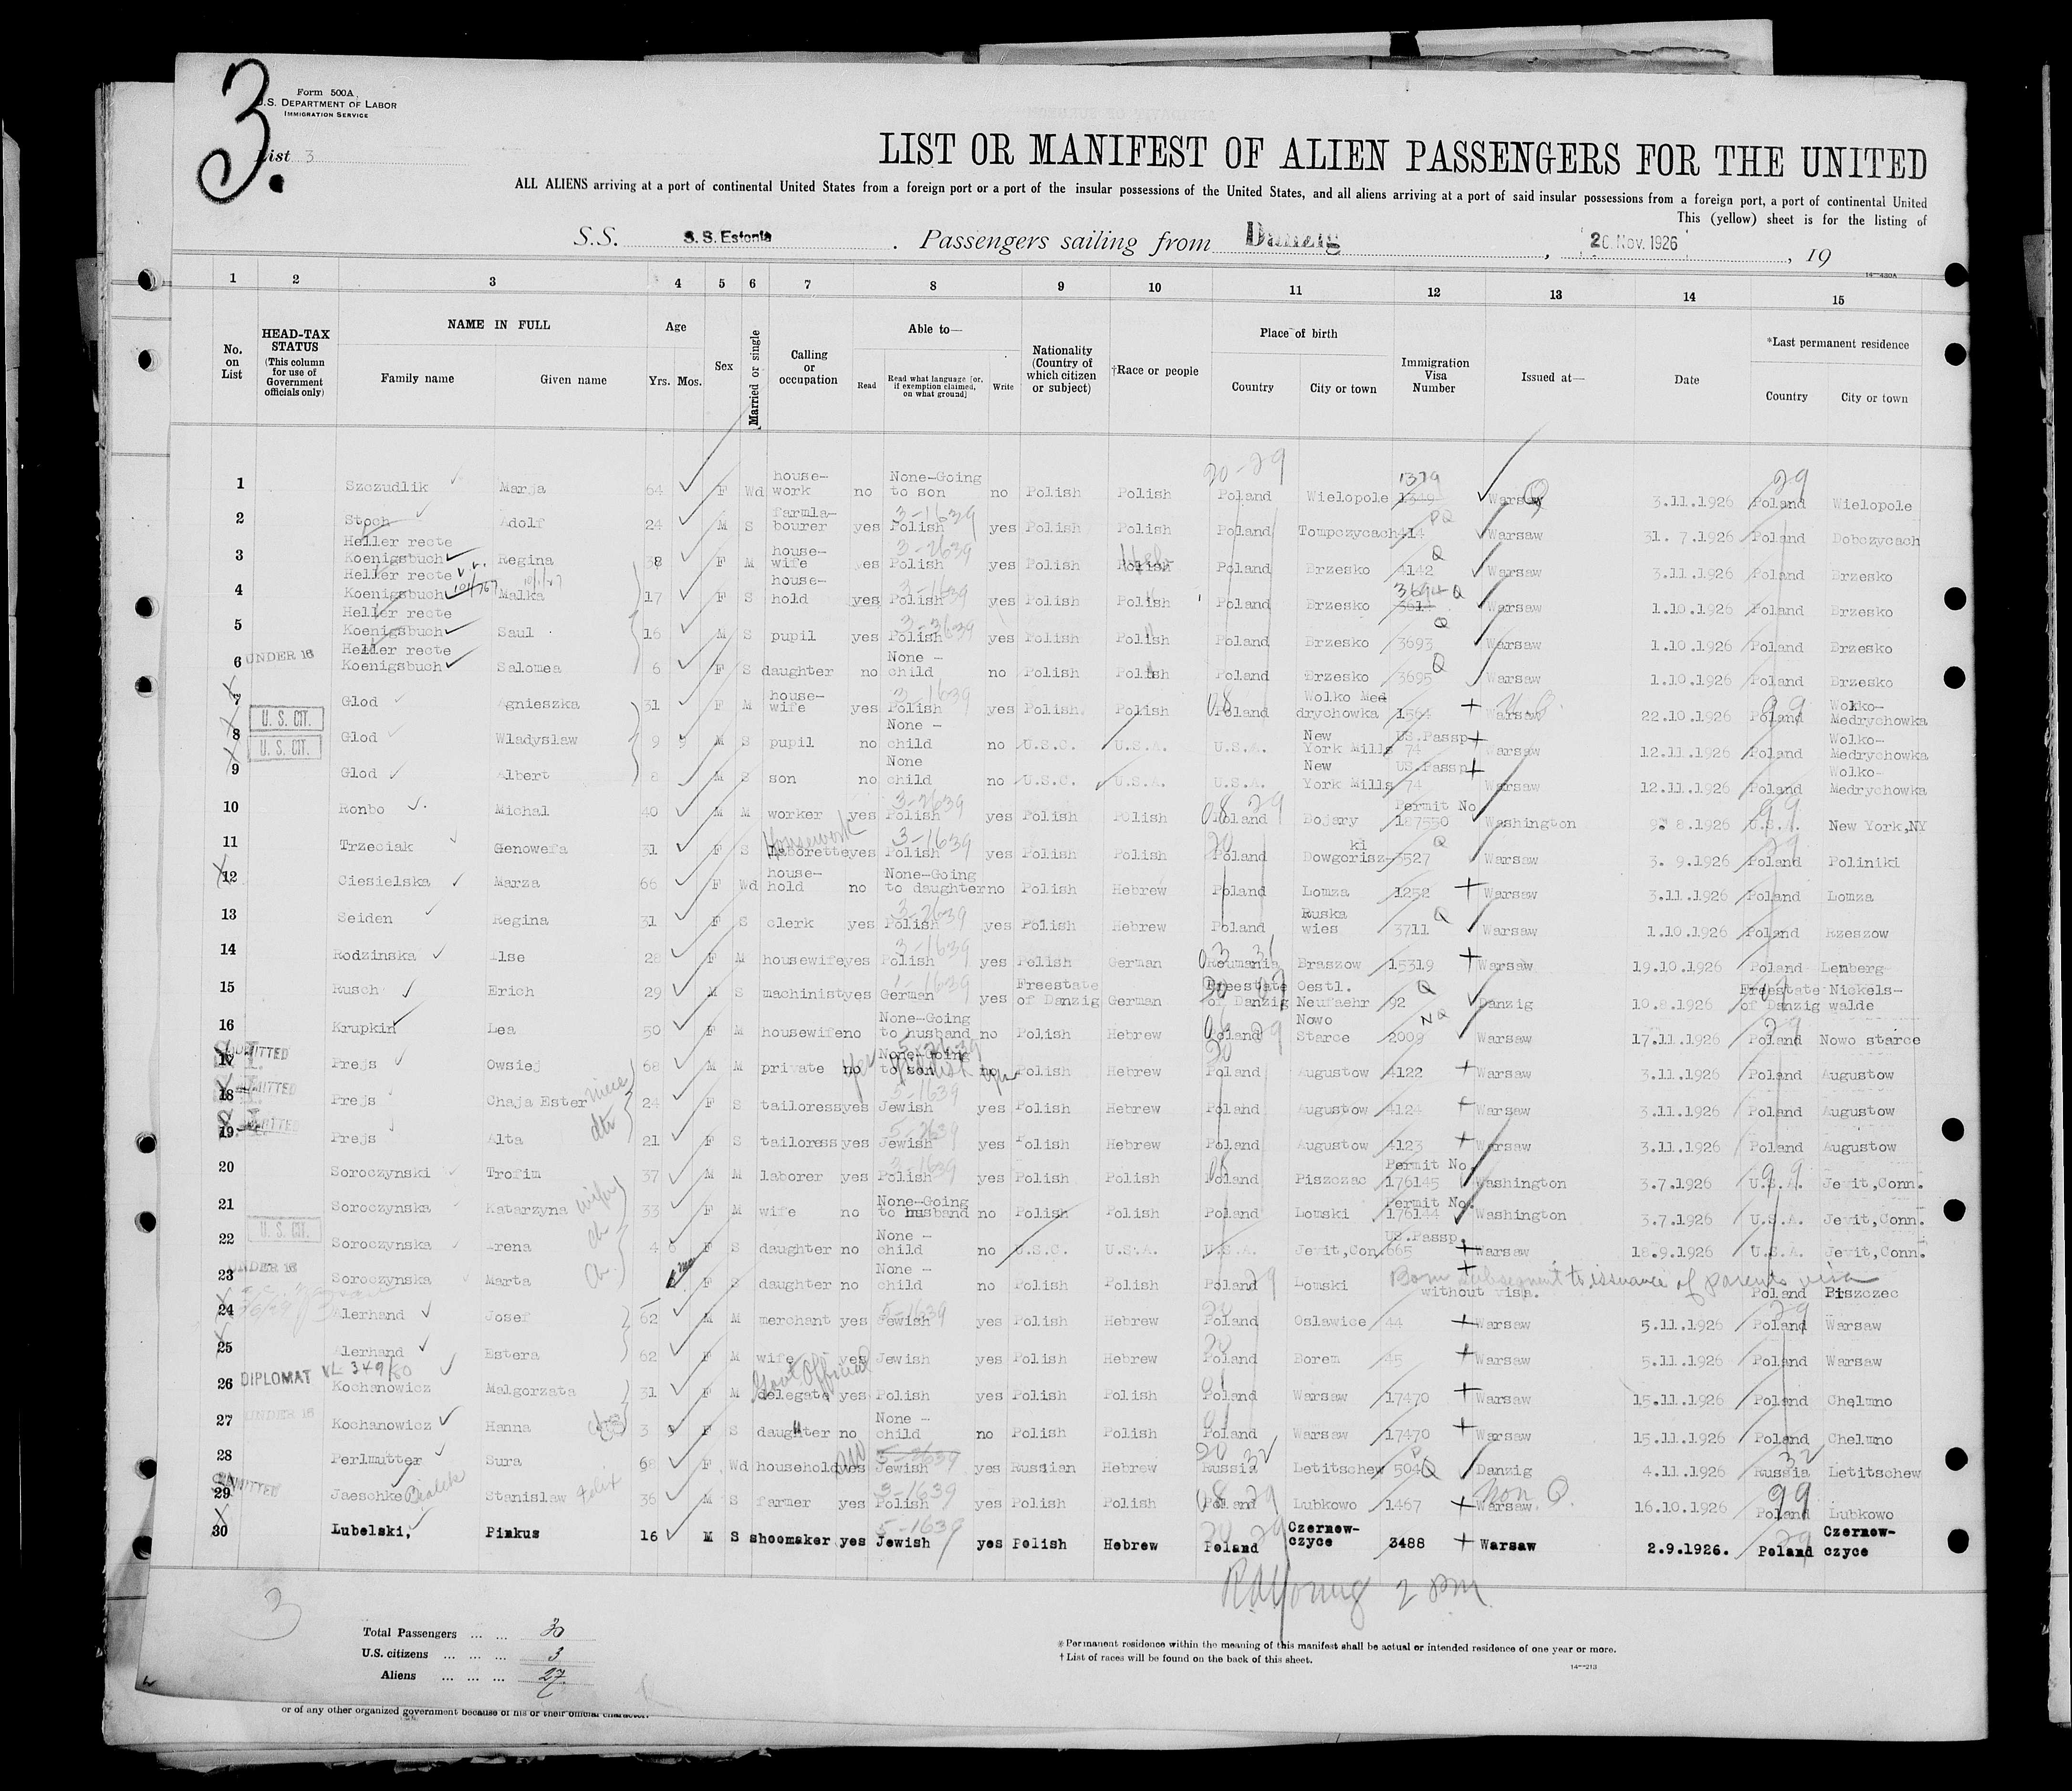 3.
Form 500A
U.S. DEPARTMENT OF LABOR
IMMIGRATION SERVICE
List 3
LIST OR MANIFEST OF ALIEN PASSENGERS FOR THE UNITED
ALL ALIENS arriving at a port of continental United States from a foreign port or a port of the insular possessions of the United States, and all aliens arriving at a port of said insular possessions from a foreign port, a port of continental United
This (yellow) sheet is for the listing of
S.S. S.S. Estonia . Passengers sailing from Danzig , 20. Nov. 1926 , 19
14—430A
1 2 3 4 5 6 7 8 9 10 11 12 13 14 15
No. on List
HEAD-TAX STATUS (This column for use of Government officials only)
NAME IN FULL
Family name Given name
Age
Yrs. Mos.
Sex
Married or single
Calling or occupation
Able to—
Read Read what language [or, if exemption claimed, on what ground] Write
Nationality (Country of which citizen or subject)
†Race or people
Place of birth
Country City or town
Immigration Visa Number
Issued at—
Date
*Last permanent residence
Country City or town
1 Szczudlik Marja 64 F Wd house-work no None-Going to son no Polish Polish 20-29 Poland Wielopole 1349 1379 Warsaw 3.11.1926 Poland Wielopole
2 Stoch Adolf 24 M S farmla-bourer yes Polish 3-1639 yes Polish Polish Poland Toupczycach 414 PQ Warsaw 31. 7.1926 Poland Dobczycach
3 Heller recte Koenigsbuch Regina 38 F M house-wife yes Polish 3-2639 yes Polish Polish Poland Brzesko 4142 Q Warsaw 3.11.1926 Poland Brzesko
4 Heller recte Koenigsbuch Malka 17 F S house-hold yes Polish 3-1639 yes Polish Polish Poland Brzesko 3694 Q Warsaw 1.10.1926 Poland Brzesko
5 Heller recte Koenigsbuch Saul 16 M S pupil yes Polish 3-3639 yes Polish Polish Poland Brzesko 3693 Q Warsaw 1.10.1926 Poland Brzesko
6 UNDER 16 Heller recte Koenigsbuch Salomea 6 F S daughter no None - child no Polish Polish Poland Brzesko 3695 Q Warsaw 1.10.1926 Poland Brzesko
7 Glod Agnieszka 31 F M house-wife yes Polish 3-1639 yes Polish Polish Poland Wolko Med drychowka 1564 Warsaw 22.10.1926 Poland Wolko-Medrychowka
8 U. S. CIT. Glod Wladyslaw 9 9 M S pupil no None - child no U.S.C. U.S.A. U.S.A. New York Mills US.Passp 74 Warsaw 12.11.1926 Poland Wolko-Medrychowka
9 U. S. CIT. Glod Albert 8 M S son no None child no U.S.C. U.S.A. U.S.A. New York Mills US.Passp 74 Warsaw 12.11.1926 Poland Wolko-Medrychowka
10 Ronbo Michal 40 M M worker yes Polish 3-2639 yes Polish Polish Poland Dojary Permit No 187550 Washington 9. 8.1926 U.S.A. New York,NY
11 Trzeciak Genowefa 31 F S Laborette Housework yes Polish 3-1639 yes Polish Polish Poland Dowgorisz-ki 3527 Q Warsaw 3. 9.1926 Poland Poliniki
12 Ciesielska Marza 66 F Wd house-hold no None-Going to daughter no Polish Hebrew Poland Lomza 1252 Warsaw 3.11.1926 Poland Lomza
13 Seiden Regina 31 F S clerk yes Polish 3-2639 yes Polish Hebrew Poland Ruska wies 3711 Q Warsaw 1.10.1926 Poland Rzeszow
14 Rodzinska Ilse 28 F M housewife yes Polish 3-1639 yes Polish German Roumania Braszow 15319 Warsaw 19.10.1926 Poland Lemberg
15 Rusch Erich 29 M S machinist yes German 1-1639 yes Freestate of Danzig German Freestate of Danzig Oestl. Neufaehr 92 Q Danzig 10.8.1926 Freestate of Danzig Nickels-walde
16 Krupkin Lea 50 F M housewife no None-Going to husband no Polish Hebrew Poland Nowo Starce 2009 NQ Warsaw 17.11.1926 Poland Nowo starce
17 S.I. ADMITTED Prejs Owsiej 68 M M private no None-Going to son no Polish Hebrew Poland Augustow 4122 Warsaw 3.11.1926 Poland Augustow
18 S.I. ADMITTED Prejs Chaja Ester niece 24 F S tailoress yes Jewish 5-1639 yes Polish Hebrew Poland Augustow 4124 Warsaw 3.11.1926 Poland Augustow
19 S.I. ADMITTED Prejs Alta dtr 21 F S tailoress yes Jewish 5-2639 yes Polish Hebrew Poland Augustow 4123 Warsaw 3.11.1926 Poland Augustow
20 Soroczynski Trofim 37 M M laborer yes Polish 3-1639 yes Polish Polish Poland Piszczac Permit No. 176145 Washington 3.7.1926 U.S.A. Jevit,Conn.
21 Soroczynska Katarzyna wife 33 F M wife no None-Going to husband no Polish Polish Poland Lomski Permit No. 176144 Washington 3.7.1926 U.S.A. Jevit,Conn.
22 U. S. CIT. Soroczynska Irena ch 4 6 F S daughter no None - child no U.S.C. U.S.A. U.S.A. Jevit,Con. US.Passp. 665 Warsaw 18.9.1926 U.S.A. Jevit,Conn.
23 UNDER 16 Soroczynska Marta ch. F S daughter no None - child no Polish Polish Poland Lomski Born subsequent to issuance of parents visa without visa. Poland Piszczec
24 Alerhand Josef 62 M M merchant yes Jewish 5-1639 yes Polish Hebrew Poland Oslawice 44 Warsaw 5.11.1926 Poland Warsaw
25 Alerhand Estera 62 F M wife yes Jewish yes Polish Hebrew Poland Borem 45 Warsaw 5.11.1926 Poland Warsaw
26 DIPLOMAT Kochanowicz Malgorzata 31 F M delegate Govt Official yes Polish yes Polish Polish Poland Warsaw 17470 Warsaw 15.11.1926 Poland Chelmno
27 UNDER 16 Kochanowicz Hanna 3 9 F S daughter no None - child no Polish Polish Poland Warsaw 17470 Warsaw 15.11.1926 Poland Chelmno
28 Perlmutter Sura 68 F Wd household yes no Jewish 5-2639 yes Russian Hebrew Russia Letitschew 504 Danzig 4.11.1926 Russia Letitschew
29 ADMITTED Jaeschke Stanislaw Felix 36 M S farmer yes Polish 3-1639 yes Polish Polish Poland Lubkowo 1467 Warsaw. Non Q. 16.10.1926 Poland Lubkowo
30 Lubelski, Pinkus 16 M S shoemaker yes Jewish 5-1639 yes Polish Hebrew Poland Czernow-czyce 3488 Warsaw 2.9.1926. Poland Czernow-czyce
RA Young 2 pm
3
Total Passengers ... ... 30
U.S. citizens ... ... ... 3
Aliens ... ... ... 27
* Permanent residence within the meaning of this manifest shall be actual or intended residence of one year or more.
† List of races will be found on the back of this sheet.
14—213
or of any other organized government because of his or their official character.